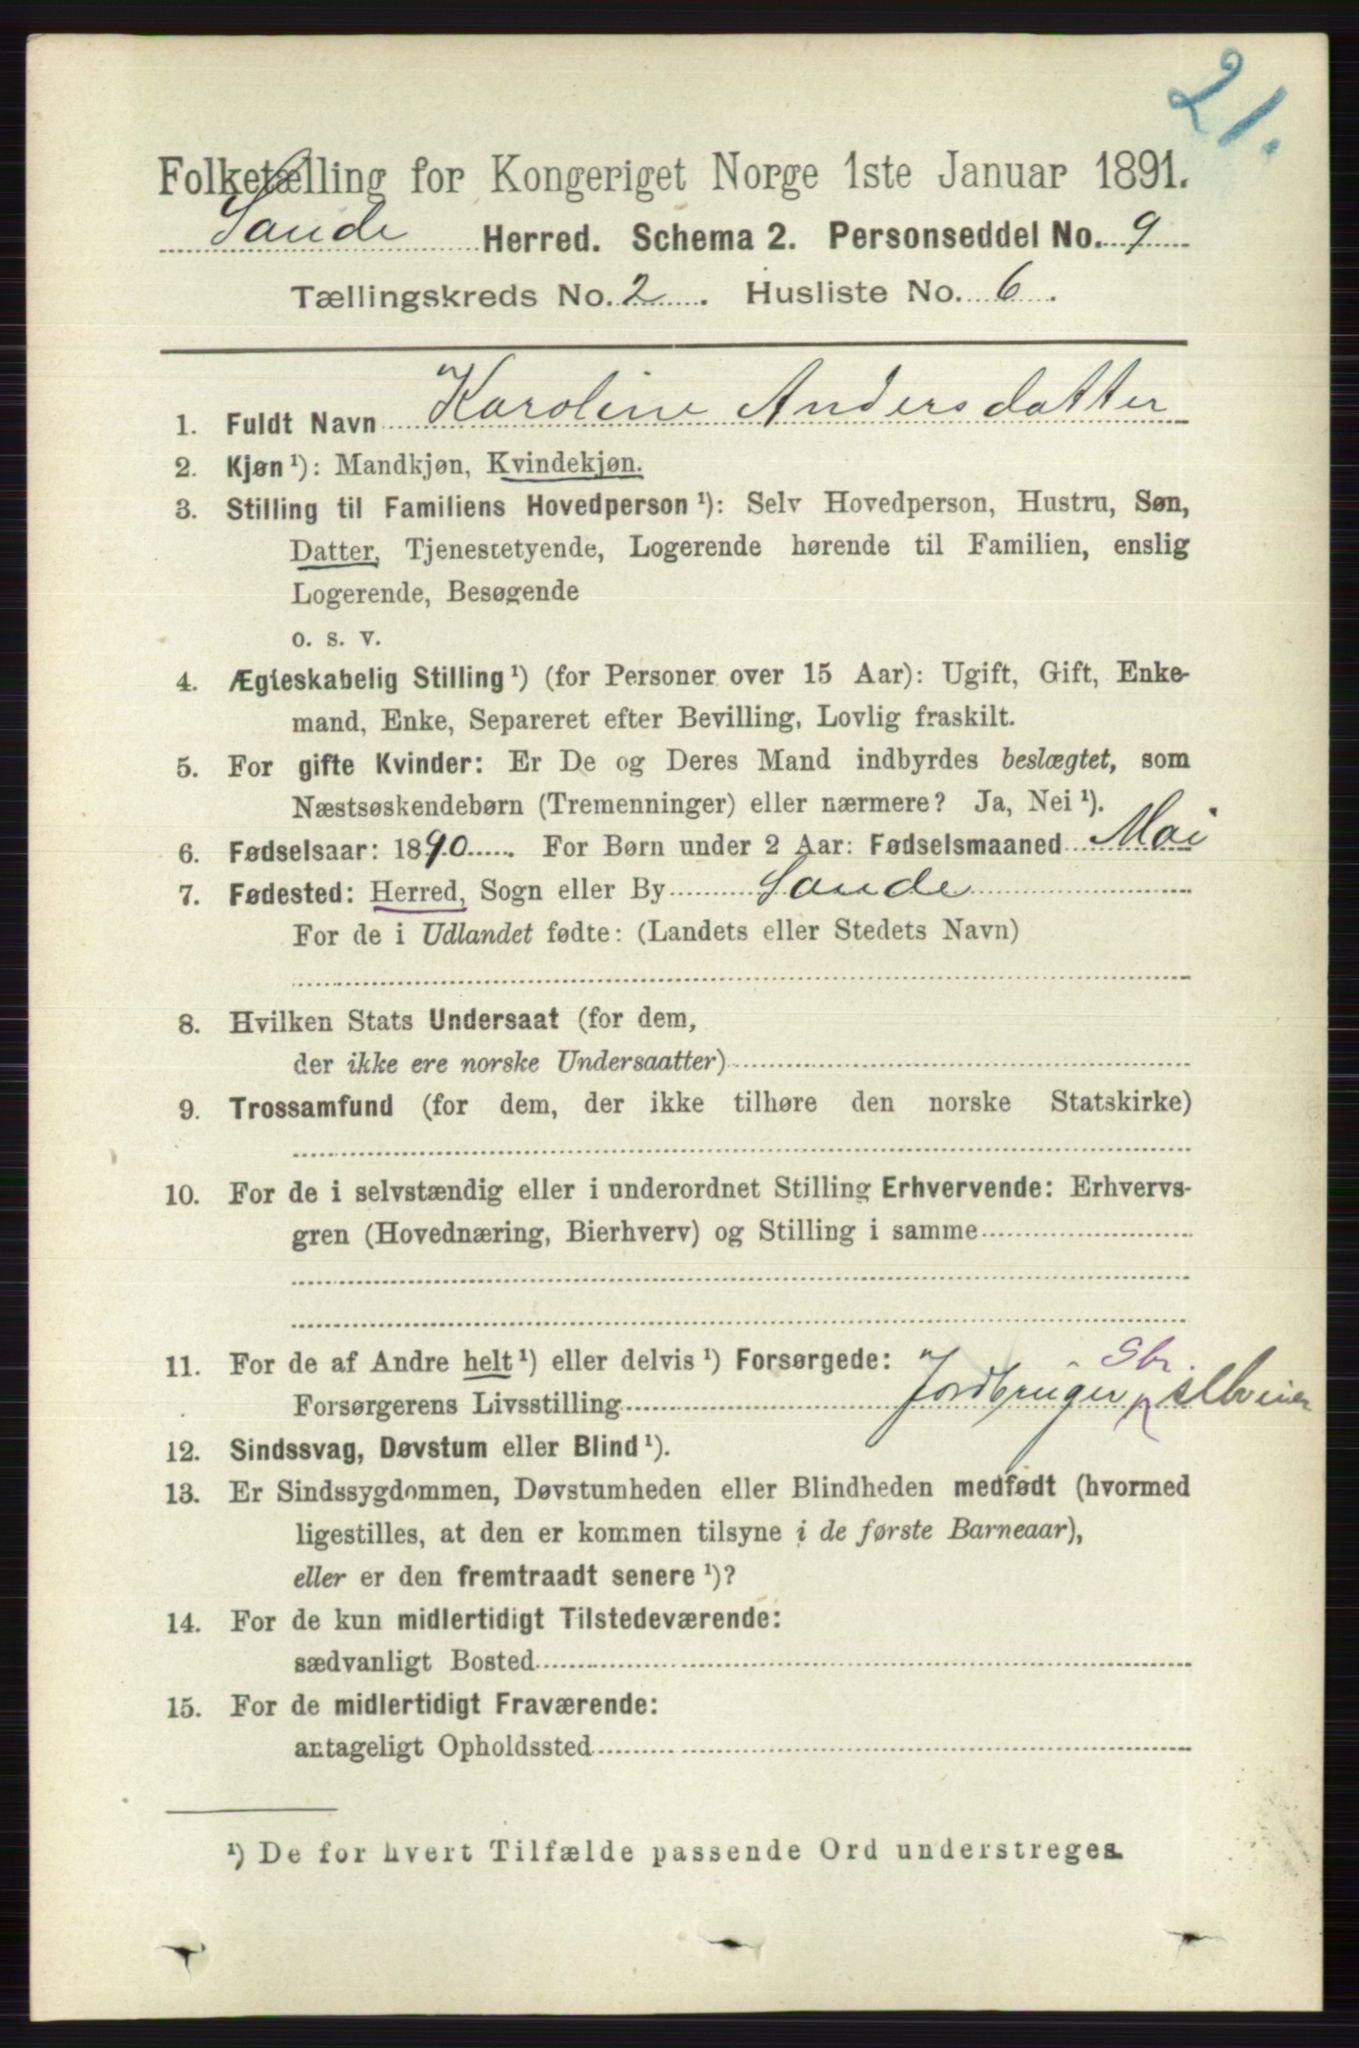 21.
Folketælling for Kongeriget Norge 1ste Januar 1891.
Sande Herred. Schema 2. Personseddel No. 9
Tællingskreds No. 2. Husliste No. 6.
1. Fuldt Navn Karoline Andersdatter
2. Kjøn ¹): Mandkjøn, Kvindekjøn.
3. Stilling til Familiens Hovedperson ¹): Selv Hovedperson, Hustru, Søn,
Datter, Tjenestetyende, Logerende hørende til Familien, enslig
Logerende, Besøgende
o. s. v.
4. Ægteskabelig Stilling ¹) (for Personer over 15 Aar): Ugift, Gift, Enke-
mand, Enke, Separeret efter Bevilling, Lovlig fraskilt.
5. For gifte Kvinder: Er De og Deres Mand indbyrdes beslægtet, som
Næstsøskendebørn (Tremenninger) eller nærmere? Ja, Nei ¹).
6. Fødselsaar: 1890. For Børn under 2 Aar: Fødselsmaaned Mai
7. Fødested: Herred, Sogn eller By Sande
For de i Udlandet fødte: (Landets eller Stedets Navn)
8. Hvilken Stats Undersaat (for dem,
der ikke ere norske Undersaatter)
9. Trossamfund (for dem, der ikke tilhøre den norske Statskirke)
10. For de i selvstændig eller i underordnet Stilling Erhvervende: Erhvervs-
gren (Hovednæring, Bierhverv) og Stilling i samme
11. For de af Andre helt ¹) eller delvis ¹) Forsørgede:
Forsørgerens Livsstilling Jordbruger Sbr. selveier
12. Sindssvag, Døvstum eller Blind ¹).
13. Er Sindssygdommen, Døvstumheden eller Blindheden medfødt (hvormed
ligestilles, at den er kommen tilsyne i de første Barneaar),
eller er den fremtraadt senere ¹)?
14. For de kun midlertidigt Tilstedeværende:
sædvanligt Bosted
15. For de midlertidigt Fraværende:
antageligt Opholdssted
¹) De for hvert Tilfælde passende Ord understreges.